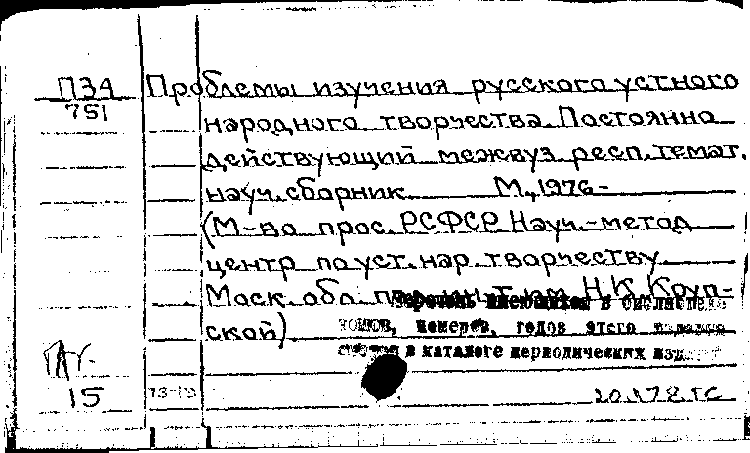 П34 Проблемы изучения русского устного
751
народного творчества. Постоянно
действующий межвуз. респ. темат.
науч. сборник. М., 1976-
(М-во прос. РСФСР. Науч.-метод
центр по уст. нар. творчеству
Моск. обл. пед. ин-т им. Н.К. Круп-
ской)
Перечень имеющихся в библиотеке
томов, номеров, годов этого издания
смотри в каталоге периодических изд
15